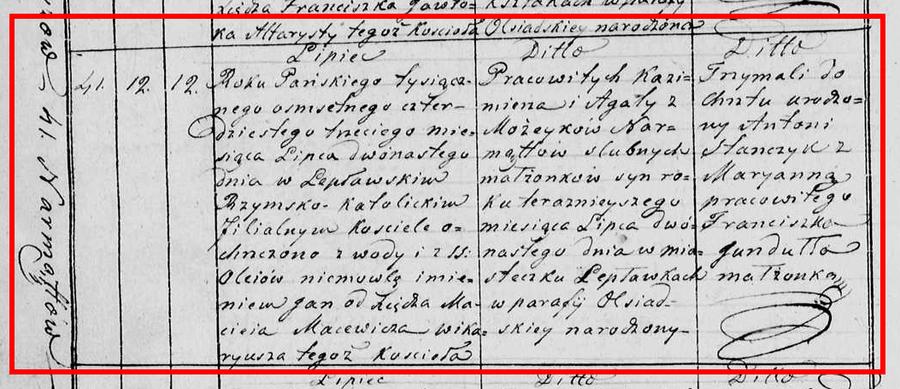 Księdza Franciszka Gawło=
ka Altarysty tegoż Kościoła
Olsiadskiey narodzona
Lipiec
41. 12. 12.
Roku Pańskiego tysiącz=
nego osmsetnego czter=
dziestego trzeciego mie=
siąca Lipca dwónastego
dnia w Lepławskim
Rzymsko-Katolickim
filialnym Kościele o=
chrzczono z wody i z SS:
Oleiów niemowlę imie=
niem Jan od Xiędza Ma=
cieia Macewicza wika=
ryusza tegoż Kościoła
Ditto
Pracowitych Kazi=
mierza i Agaty z
Możeyków Nar=
mąttów slubnych
małżonków syn ro=
ku teraznieyszego
miesiąca Lipca dwó=
nastego dnia w mia=
steczku Lepławkach
w parafij Olsiad=
skiey narodzony-
Ditto
Trzymali do
Chrztu urodzo=
ny Antoni
Stanczyk z
Maryanną
pracowitego
Franciszka
Gundułło
małżonką
Narmąttów
Lipiec
Ditto
Ditto